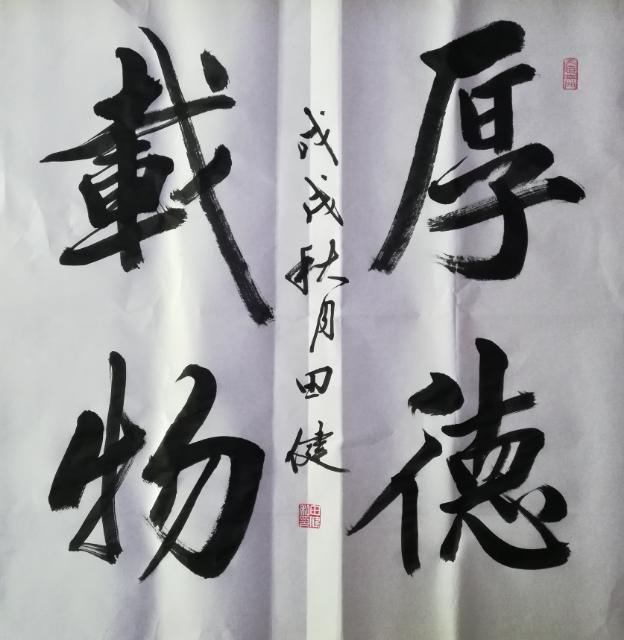 厚德
載物
戊戌秋月田健